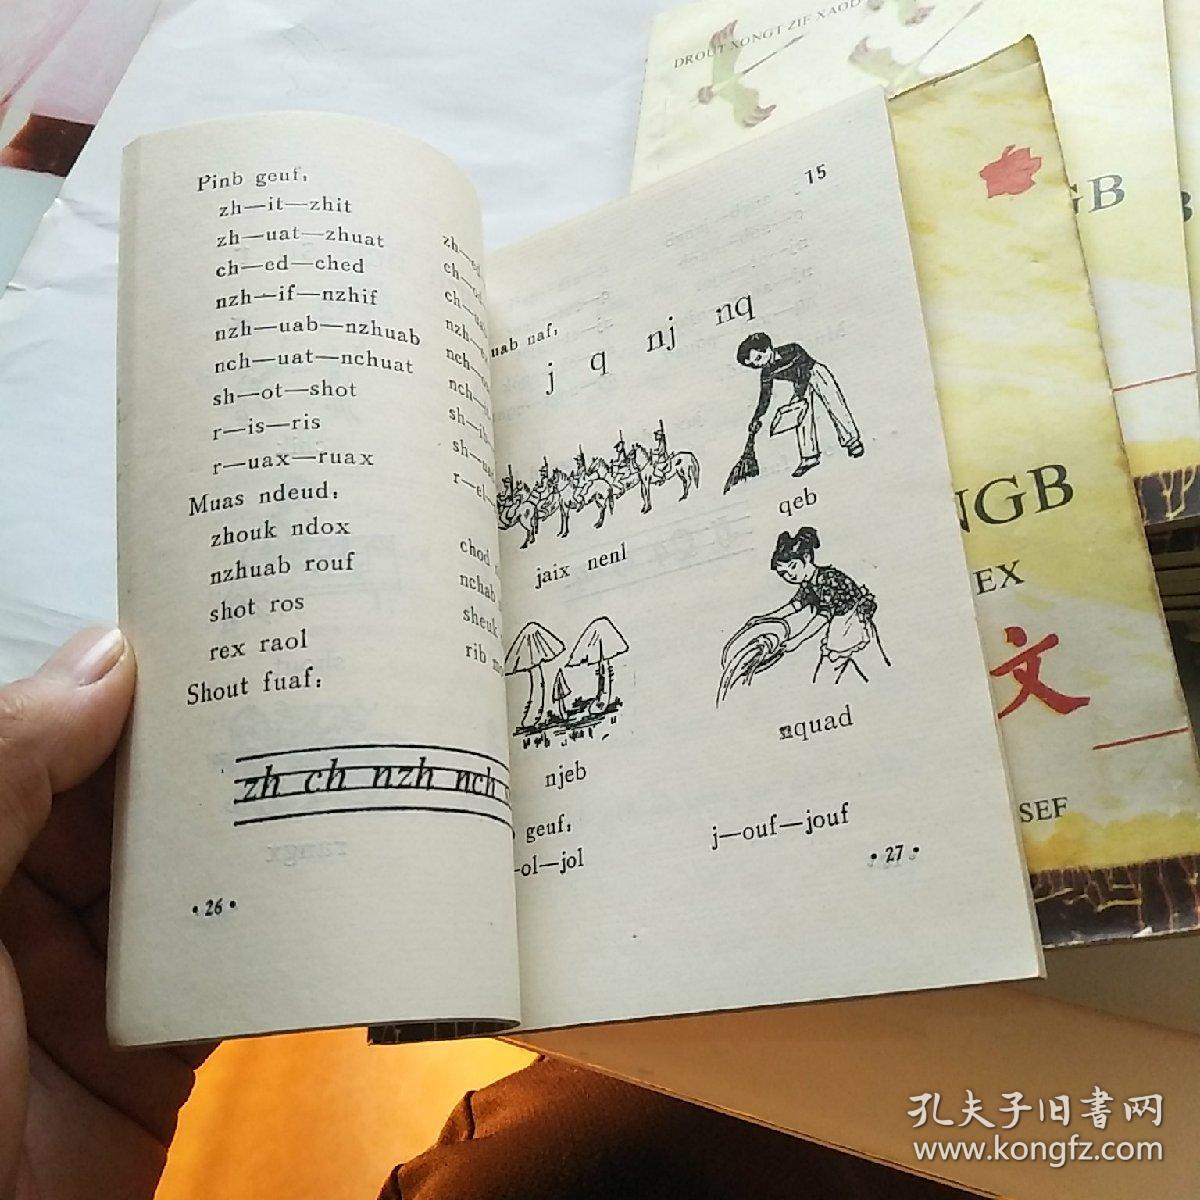 Pinb geuf:
zh—it—zhit
zh—uat—zhuat
ch—ed—ched
nzh—if—nzhif
nzh—uab—nzhuab
nch—uat—nchuat
sh—ot—shot
r—is—ris
r—uax—ruax
Muas ndeud:
zhouk ndox
nzhuab rouf
shot ros
rex raol
Shout fuaf:
chod
nchab
sheuk
rib
zh ch nzh nch
• 26 •
15
uab naf:
j q nj nq
qeb
jaix nenl
nquad
njeb
geuf:
ol—jol
j—ouf—jouf
• 27 •
DROUT XONGT ZIF XAOD
GB
NGB
EX
文
SEF
孔夫子旧书网
www.kongfz.com